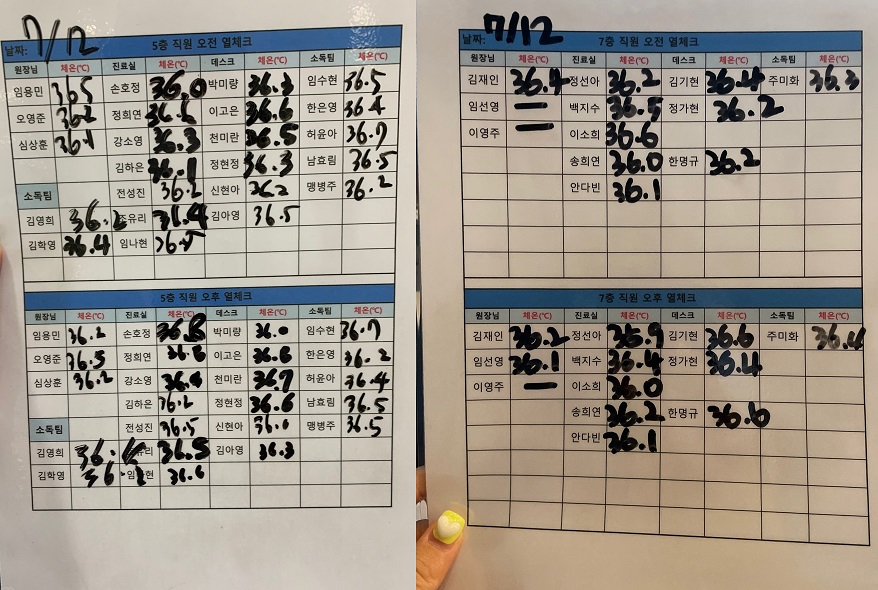 날짜: 7/12
5층 직원 오전 열체크
원장님 체온(℃) 진료실 체온(℃) 데스크 체온(℃) 소독팀 체온(℃)
임용민 36.5 손호정 36.0 박미량 36.3 임수현 36.5
오영준 36.2 정희연 36.6 이고은 36.6 한은영 36.4
심상훈 36.1 강소영 36.3 천미란 36.5 허윤아 36.7
김하은 36.1 정현정 36.3 남효림 36.5
소독팀 전성진 36.2 신현아 36.2 맹병주 36.2
김영희 36.2 유리 김아영 36.5
김학영 36.4 임나현 36.5
5층 직원 오후 열체크
원장님 체온(℃) 진료실 체온(℃) 데스크 체온(℃) 소독팀 체온(℃)
임용민 36.2 손호정 36.8 박미량 36.0 임수현 36.7
오영준 36.5 정희연 36.6 이고은 36.6 한은영 36.2
심상훈 36.2 강소영 36.4 천미란 36.7 허윤아 36.4
김하은 36.2 정현정 36.6 남효림 36.5
소독팀 전성진 36.5 신현아 36.0 맹병주 36.5
김영희 유리 36.5 김아영 36.3
김학영 36.2 현 36.6
날짜: 7/12
7층 직원 오전 열체크
원장님 체온(℃) 진료실 체온(℃) 데스크 체온(℃) 소독팀 체온(℃)
김재인 36.4 정선아 36.2 김기현 36.4 주미화 36.3
임선영 — 백지수 36.5 정가현 36.2
이영주 — 이소희 36.6
송희연 36.0 한명규 36.2
안다빈 36.1
7층 직원 오후 열체크
원장님 체온(℃) 진료실 체온(℃) 데스크 체온(℃) 소독팀 체온(℃)
김재인 36.2 정선아 35.9 김기현 36.6 주미화 36.4
임선영 36.1 백지수 36.4 정가현 36.4
이영주 — 이소희 36.0
송희연 36.2 한명규 36.6
안다빈 36.1